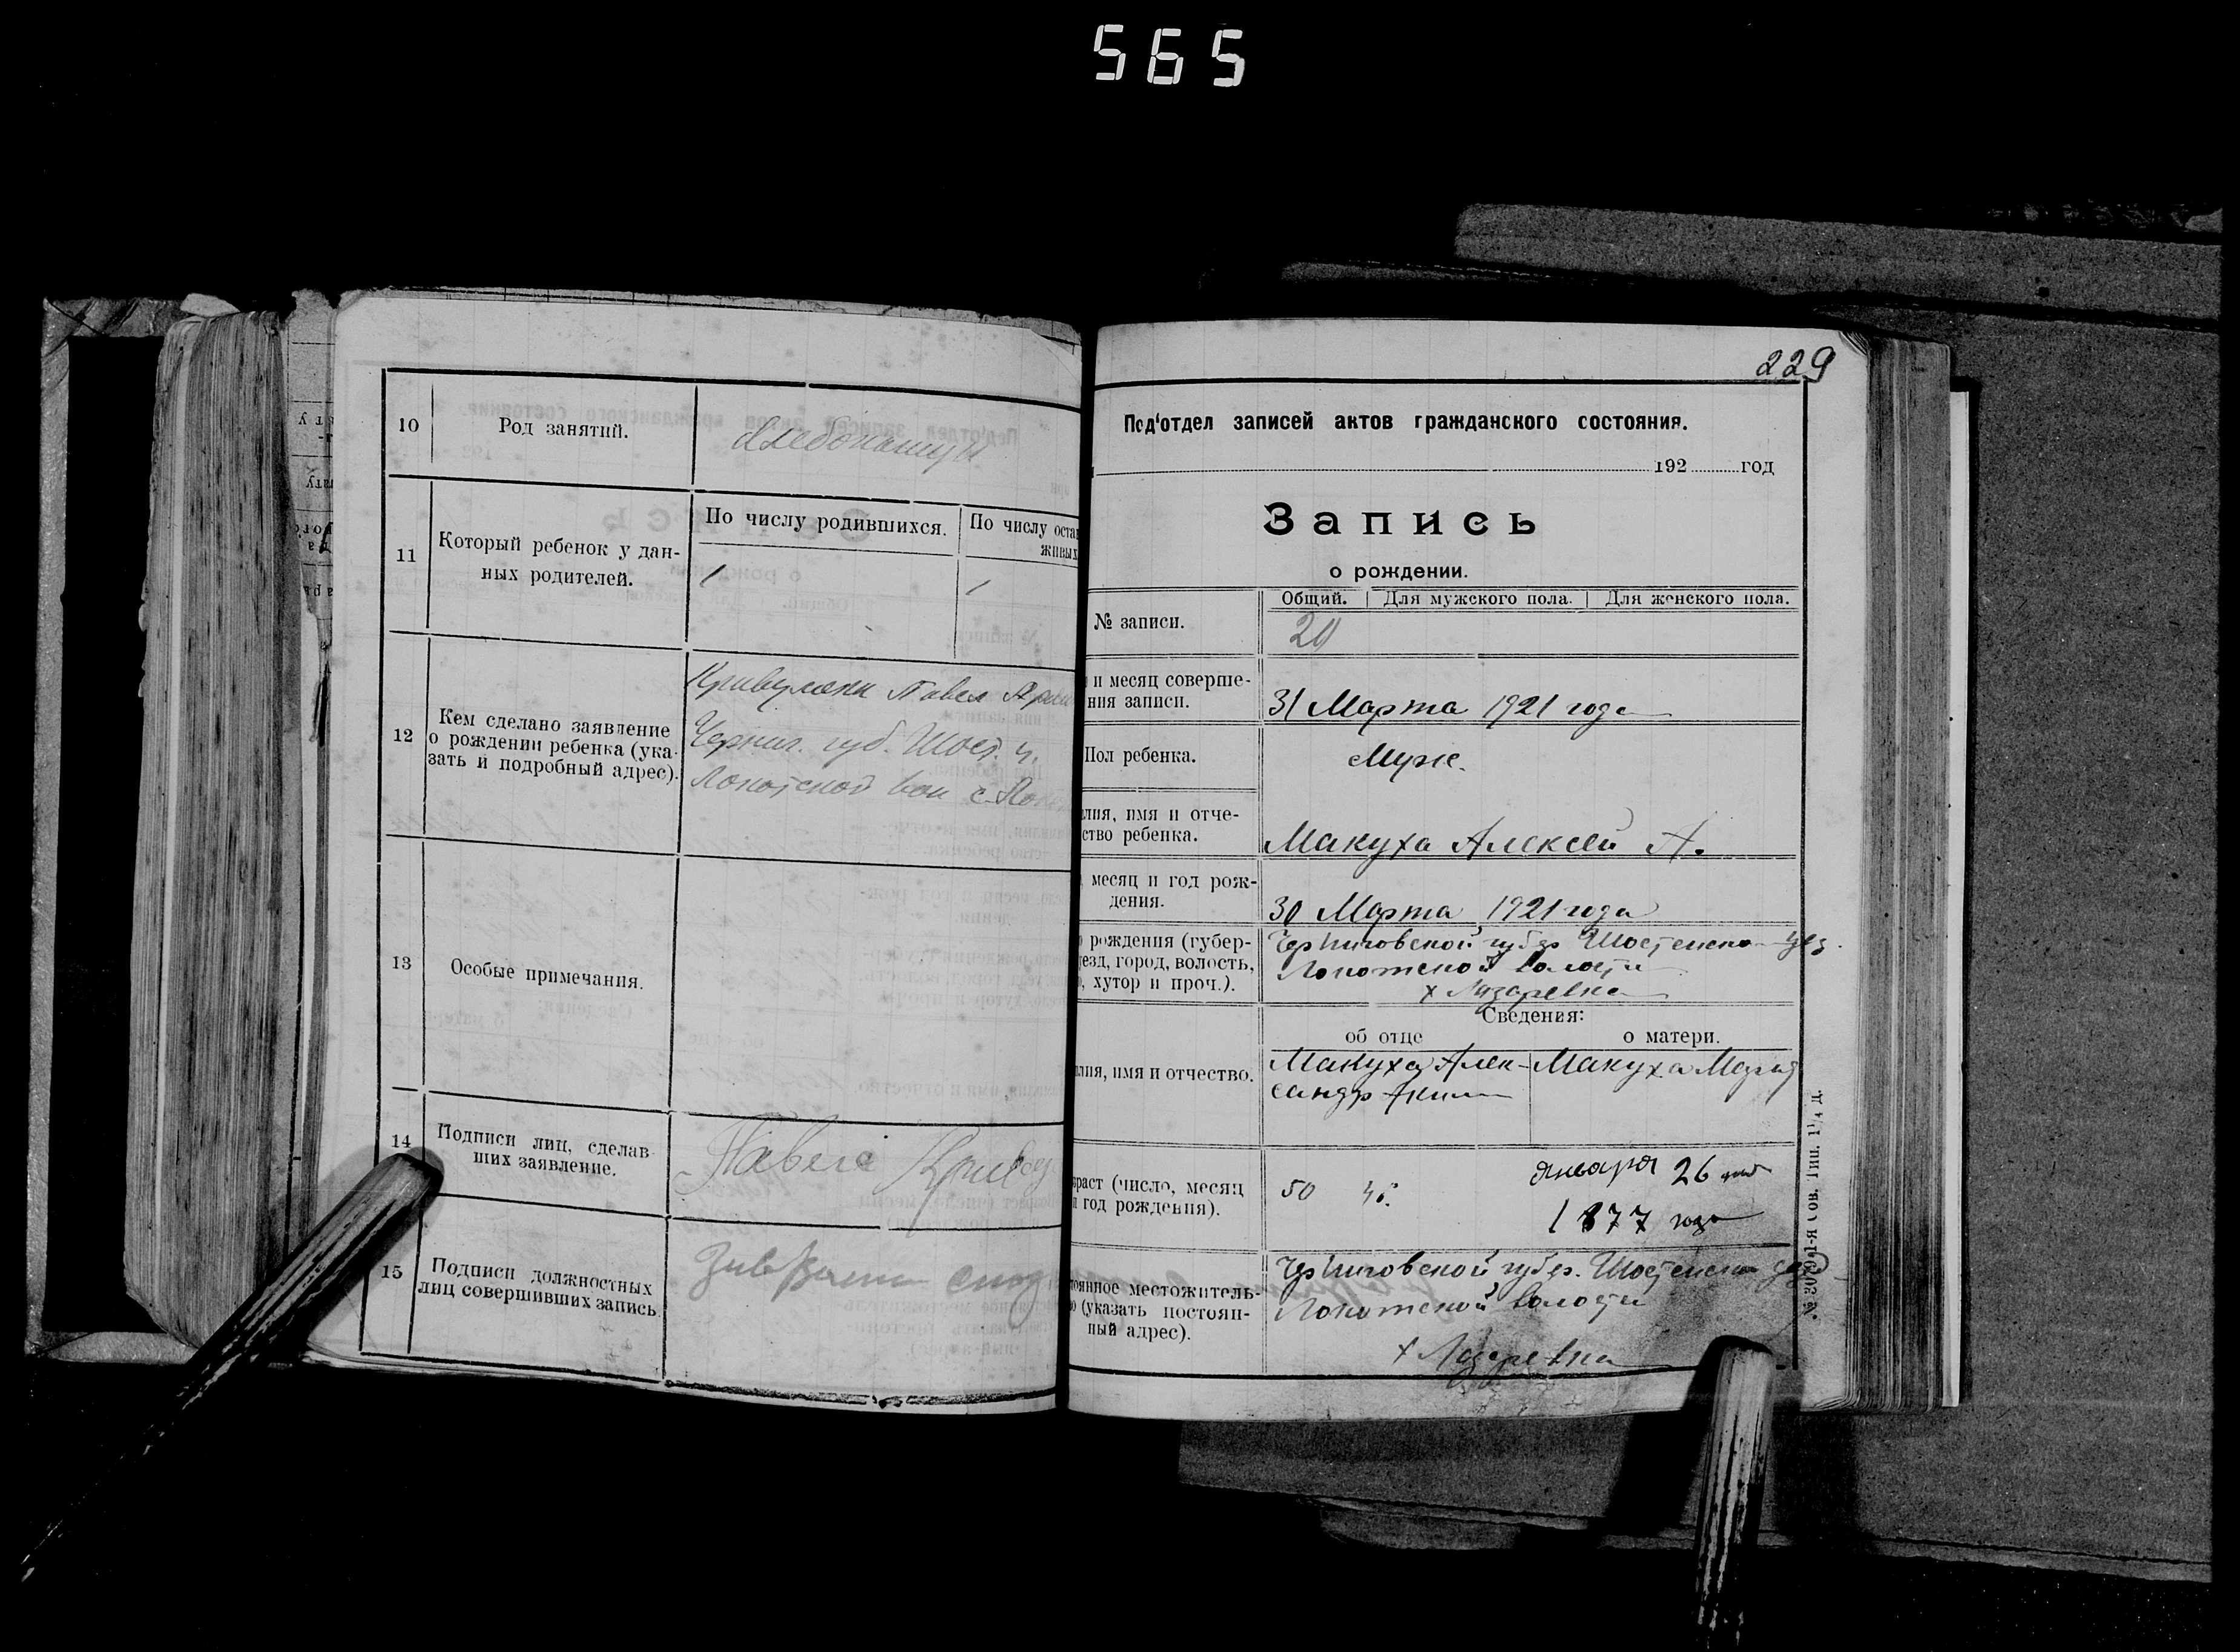 565
10
Род занятий.
Хлебопашцы
11
Который ребенок у дан-
ных родителей.
По числу родившихся.
По числу оста
живых
1
1
12
Кем сделано заявление
о рождении ребенка (ука-
зать и подробный адрес).
Павел
Черниг. губ. Шост. у.
Локотской вол с.
13
Особые примечания.
14
Подписи лиц, сделав-
ших заявление.
Павел
15
Подписи должностных
лиц совершивших запись.
229
Под‘отдел записей актов гражданского состояния.
192 год
Запись
о рождении.
№ записи.
Общий. Для мужского пола. Для женского пола.
20
и месяц соверше-
ния записи.
31 Марта 1921 года
Пол ребенка.
Муж.
лия, имя и отче-
ство ребенка.
Макуха Алексей А.
месяц и год рож-
дения.
30 Марта 1921 года
рождения (губер-
езд, город, волость,
, хутор и проч.).
Черниговской губер Шостенского уез.
Локотской волости
х Лазаревка
Сведения:
об отце
о матери.
лия, имя и отчество.
Макуха Алек-
сандр
Макуха Мария
раст (число, месяц
и год рождения).
50
января 26 дня
1877 года
оянное местожитель-
о (указать постоян-
ный адрес).
Черниговской губер. Шостенского уезд
Локотской волости
х Лазаревка